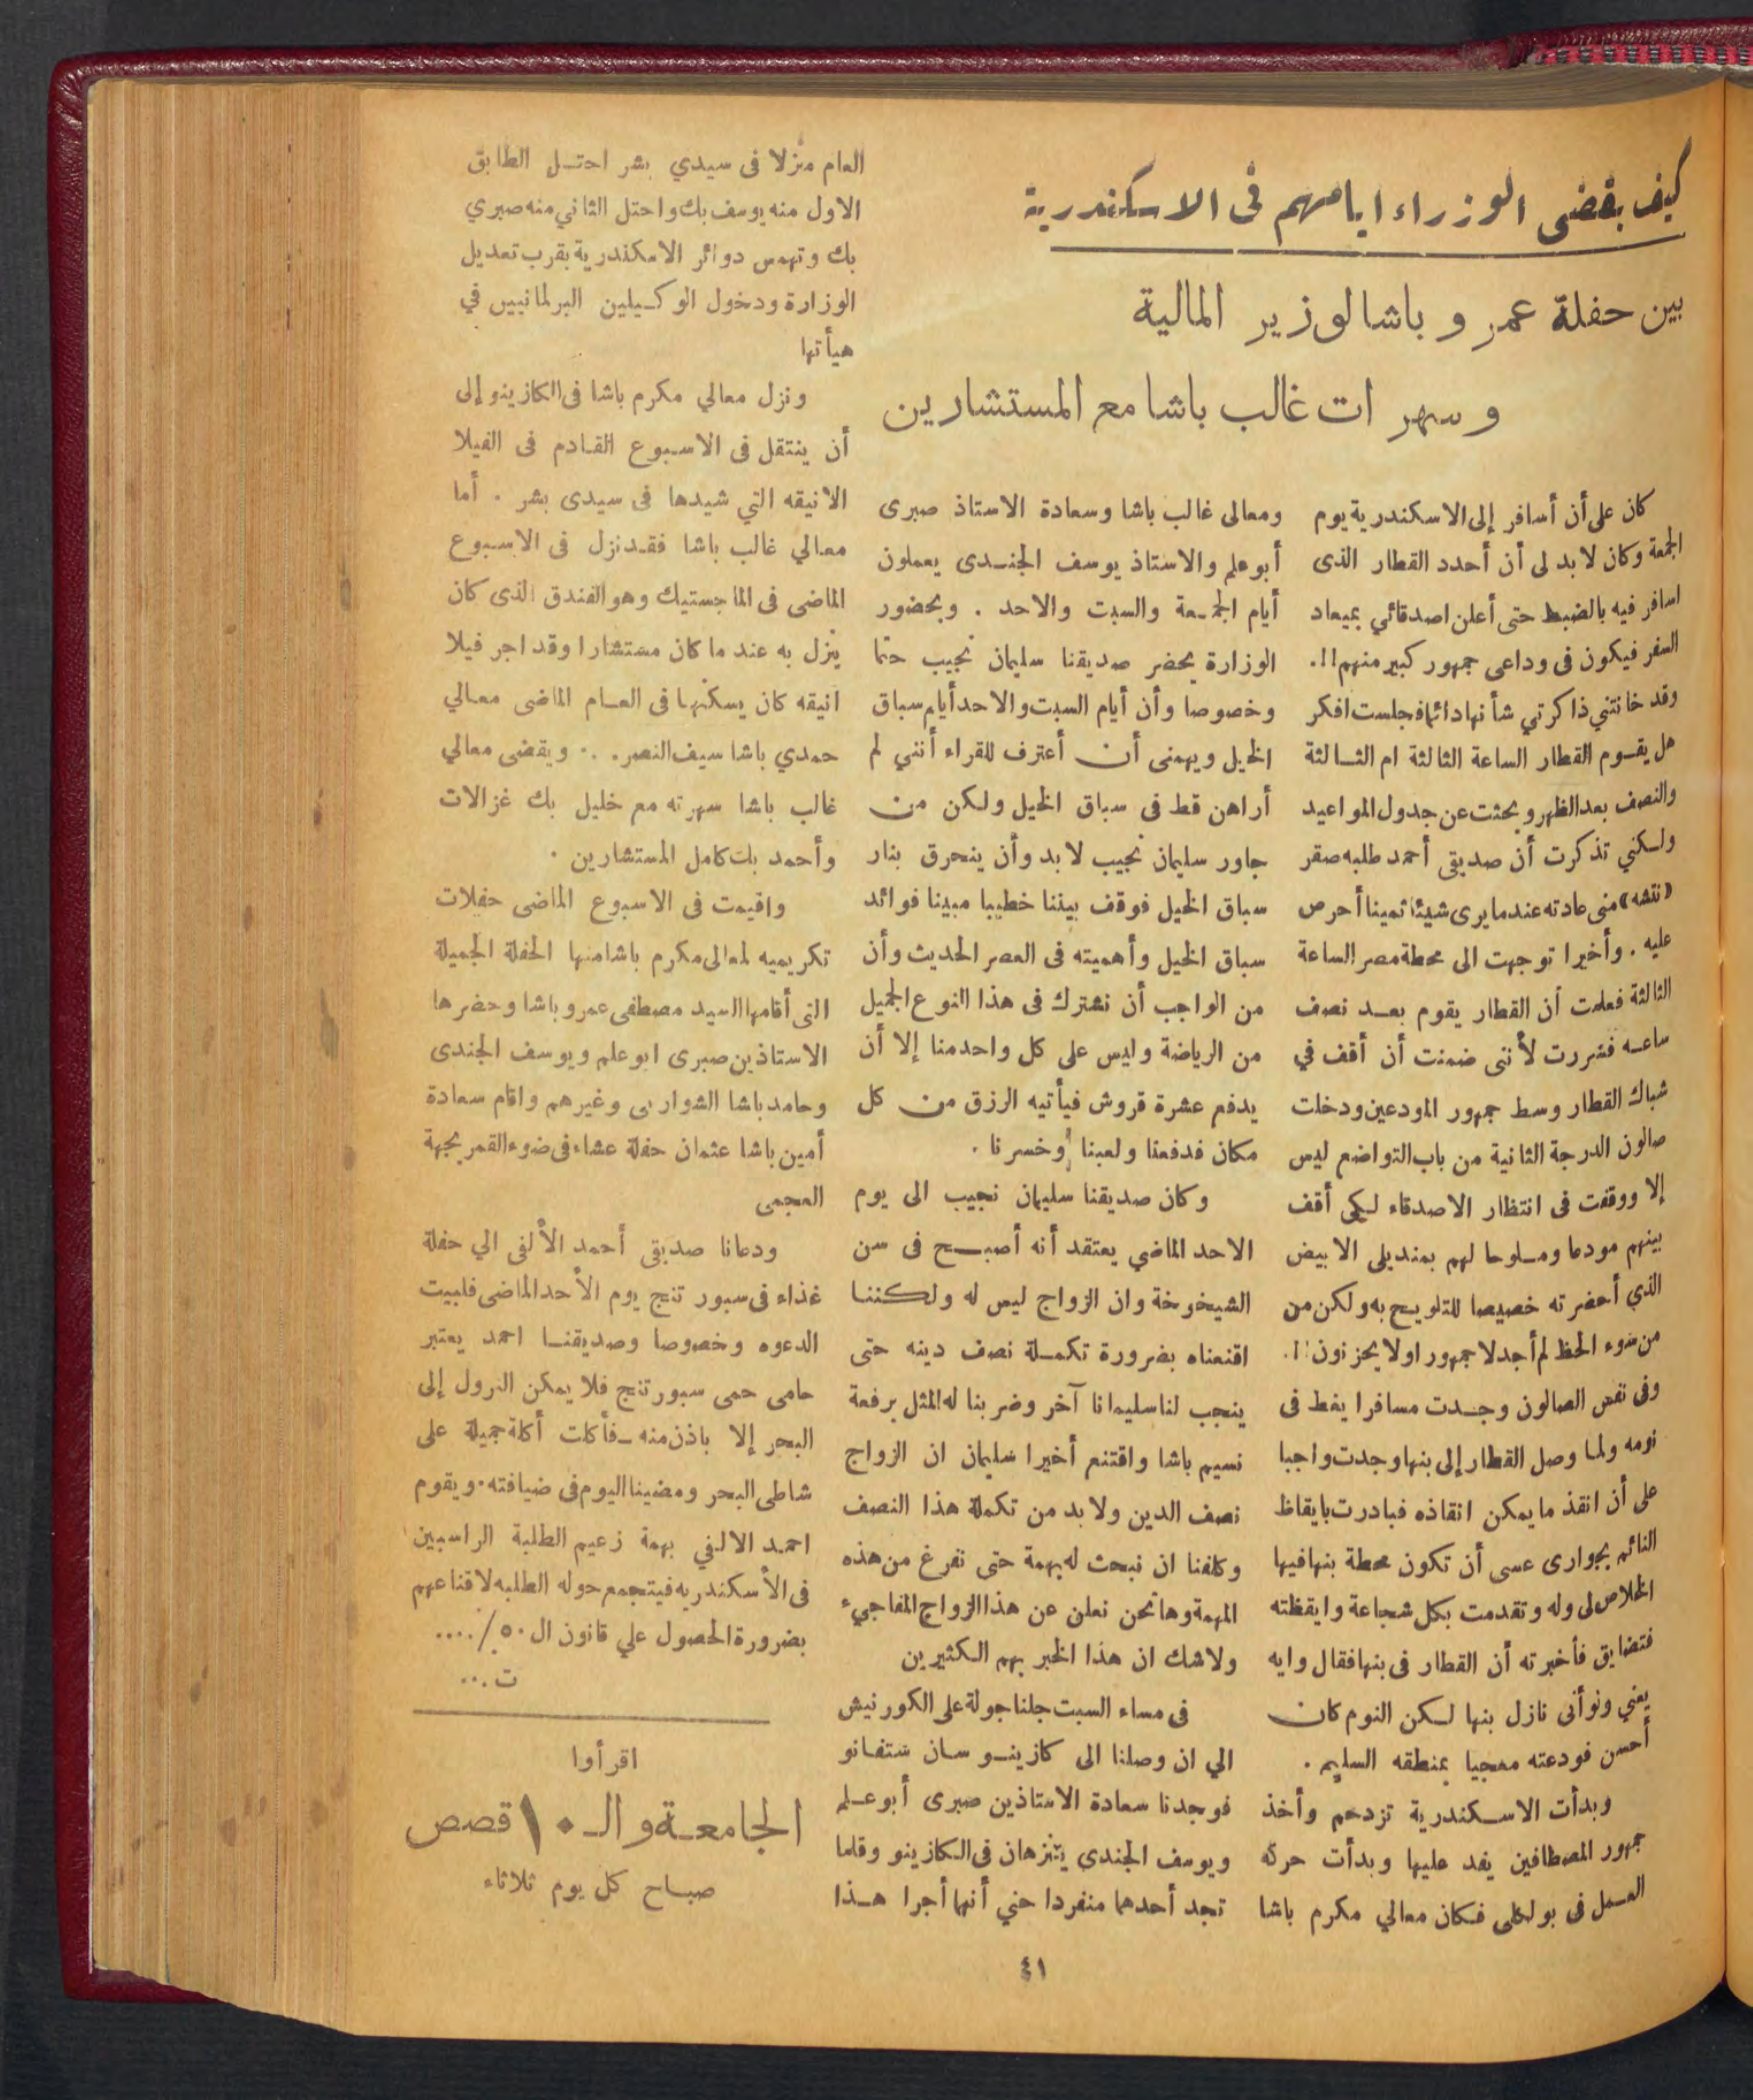 كيف يقضى الوزراء ايامهم فى الاسكندرية
بين حفلة عمرو باشا لوزير المالية
وسهرات غالب باشا مع المستشارين
كان على أن أسافر إلى الاسكندرية يوم
الجمعة وكان لا بد لى أن أحدد القطار الذى
اسافر فيه بالضبط حتى أعلن اصدقائي بميعاد
السفر فيكون فى وداعى جمهور كبير منهم!!.
وقد خانتني ذاكرتي شأنها دائما فجلست افكر
هل يقوم القطار الساعة الثالثة ام الثالثة
والنصف بعد الظهر وبحثت عن جدول المواعيد
ولكني تذكرت أن صديقى أحمد طلبه صقر
«نتشه» منى عادته عندما يرى شيئا ثمينا أحرص
عليه . وأخيرا توجهت الى محطة مصر الساعة
الثالثة فعلمت أن القطار يقوم بعد نصف
ساعه فسررت لأننى ضمنت أن أقف في
شباك القطار وسط جمهور المودعين ودخلت
صالون الدرجة الثانية من باب التواضع ليس
إلا ووقفت فى انتظار الاصدقاء لكى أقف
بينهم مودعا وملوحا لهم بمنديلى الابيض
الذي أحضرته خصيصا للتلويح به ولكن من
من سوء الحظ لم أجد لا جمهور اولا يحزنون!!.
وفى نفس الصالون وجدت مسافرا يغط فى
نومه ولما وصل القطار إلى بنها وجدت واجبا
على أن انقذ ما يمكن انقاذه فبادرت بايقاظ
النائم بجوارى عسى أن تكون محطة بنها فيها
الخلاص لى وله وتقدمت بكل شجاعة وايقظته
فتضايق فأخبرته أن القطار فى بنها فقال وايه
يعني ونو أنى نازل بنها لكن النوم كان
أحسن فودعته معجبا بمنطقه السليم .
وبدأت الاسكندرية تزدحم وأخذ
جمهور المصطافين يفد عليها وبدأت حركه
العمل فى بولكلى فكان معالي مكرم باشا
ومعالى غالب باشا وسعادة الاستاذ صبرى
أبو علم والاستاذ يوسف الجندى يعملون
أيام الجمعة والسبت والاحد . وبحضور
الوزارة يحضر صديقنا سليمان نجيب حتما
وخصوصا وأن أيام السبت والاحد أيام سباق
الخيل ويهمنى أن أعترف للقراء أنني لم
أراهن قط فى سباق الخيل ولكن من
جاور سليمان نجيب لا بد وأن ينحرق بنار
سباق الخيل فوقف بيننا خطيبا مبينا فوائد
سباق الخيل وأهميته فى العصر الحديث وأن
من الواجب أن نشترك فى هذا النوع الجميل
من الرياضة وليس على كل واحد منا إلا أن
يدفع عشرة قروش فيأتيه الرزق من كل
مكان فدفعنا ولعبنا وخسرنا .
وكان صديقنا سليمان نجيب الى يوم
الاحد الماضي يعتقد أنه أصبح فى سن
الشيخوخة وان الزواج ليس له ولكننا
اقنعناه بضرورة تكملة نصف دينه حتى
ينجب لنا سليمانا آخر وضربنا له المثل برفعة
نسيم باشا واقتنع أخيرا سليمان ان الزواج
نصف الدين ولا بد من تكملة هذا النصف
وكلفنا ان نبحث له بهمة حتى نفرغ من هذه
المهمة وها نحن نعلن عن هذا الزواج المفاجيء
ولا شك ان هذا الخبر يهم الكثيرين
فى مساء السبت جلنا جولة على الكورنيش
الي ان وصلنا الى كازينو سان ستفانو
فوجدنا سعادة الاستاذين صبرى أبو علم
ويوسف الجندى يتنزهان فى الكازينو وقلما
تجد أحدهما منفردا حتي أنهما أجرا هذا
العام منزلا فى سيدي بشر احتل الطابق
الاول منه يوسف بك واحتل الثاني منه صبري
بك وتهمس دوائر الاسكندرية بقرب تعديل
الوزارة ودخول الوكيلين البرلمانيين في
هيأتها
ونزل معالي مكرم باشا فى الكازينو إلى
أن ينتقل فى الاسبوع القادم فى الفيلا
الانيقه التي شيدها فى سيدى بشر . أما
معالي غالب باشا فقد نزل فى الاسبوع
الماضى فى الماجستيك وهو الفندق الذى كان
ينزل به عند ما كان مستشارا وقد اجر فيلا
انيقه كان يسكنها فى العام الماضى معالي
حمدي باشا سيف النصر. .٠ ويقضى معالي
غالب باشا سهرته مع خليل بك غزالات
وأحمد بك كامل المستشارين .
واقيمت فى الاسبوع الماضى حفلات
تكريميه لمعالى مكرم باشا منها الحفلة الجميلة
التى أقامها السيد مصطفى عمرو باشا وحضرها
الاستاذين صبرى ابو علم ويوسف الجندى
وحامد باشا الشواربى وغيرهم واقام سعادة
أمين باشا عثمان حفلة عشاء فى ضوء القمر بجهة
العجمى
ودعانا صديقى أحمد الألفى الي حفلة
غذاء فى سبور تنج يوم الأحد الماضى فلبيت
الدعوه وخصوصا وصديقنا احمد يعتبر
حامى حمى سبورتنج فلا يمكن النزول إلى
البحر إلا باذن منه ـ فأكلت أكلة جميلة على
شاطى البحر ومضينا اليوم فى ضيافته . ويقوم
احمد الالفي بهمة زعيم الطلبة الراسبين
فى الأسكندريه فيتجمع حوله الطلبه لاقناعهم
بضرورة الحصول علي قانون ال ٥٠ ./. ...
ت ...
اقرأوا
الجامعة و الـ ١٠ قصص
صباح كل يوم ثلاثاء
٤١